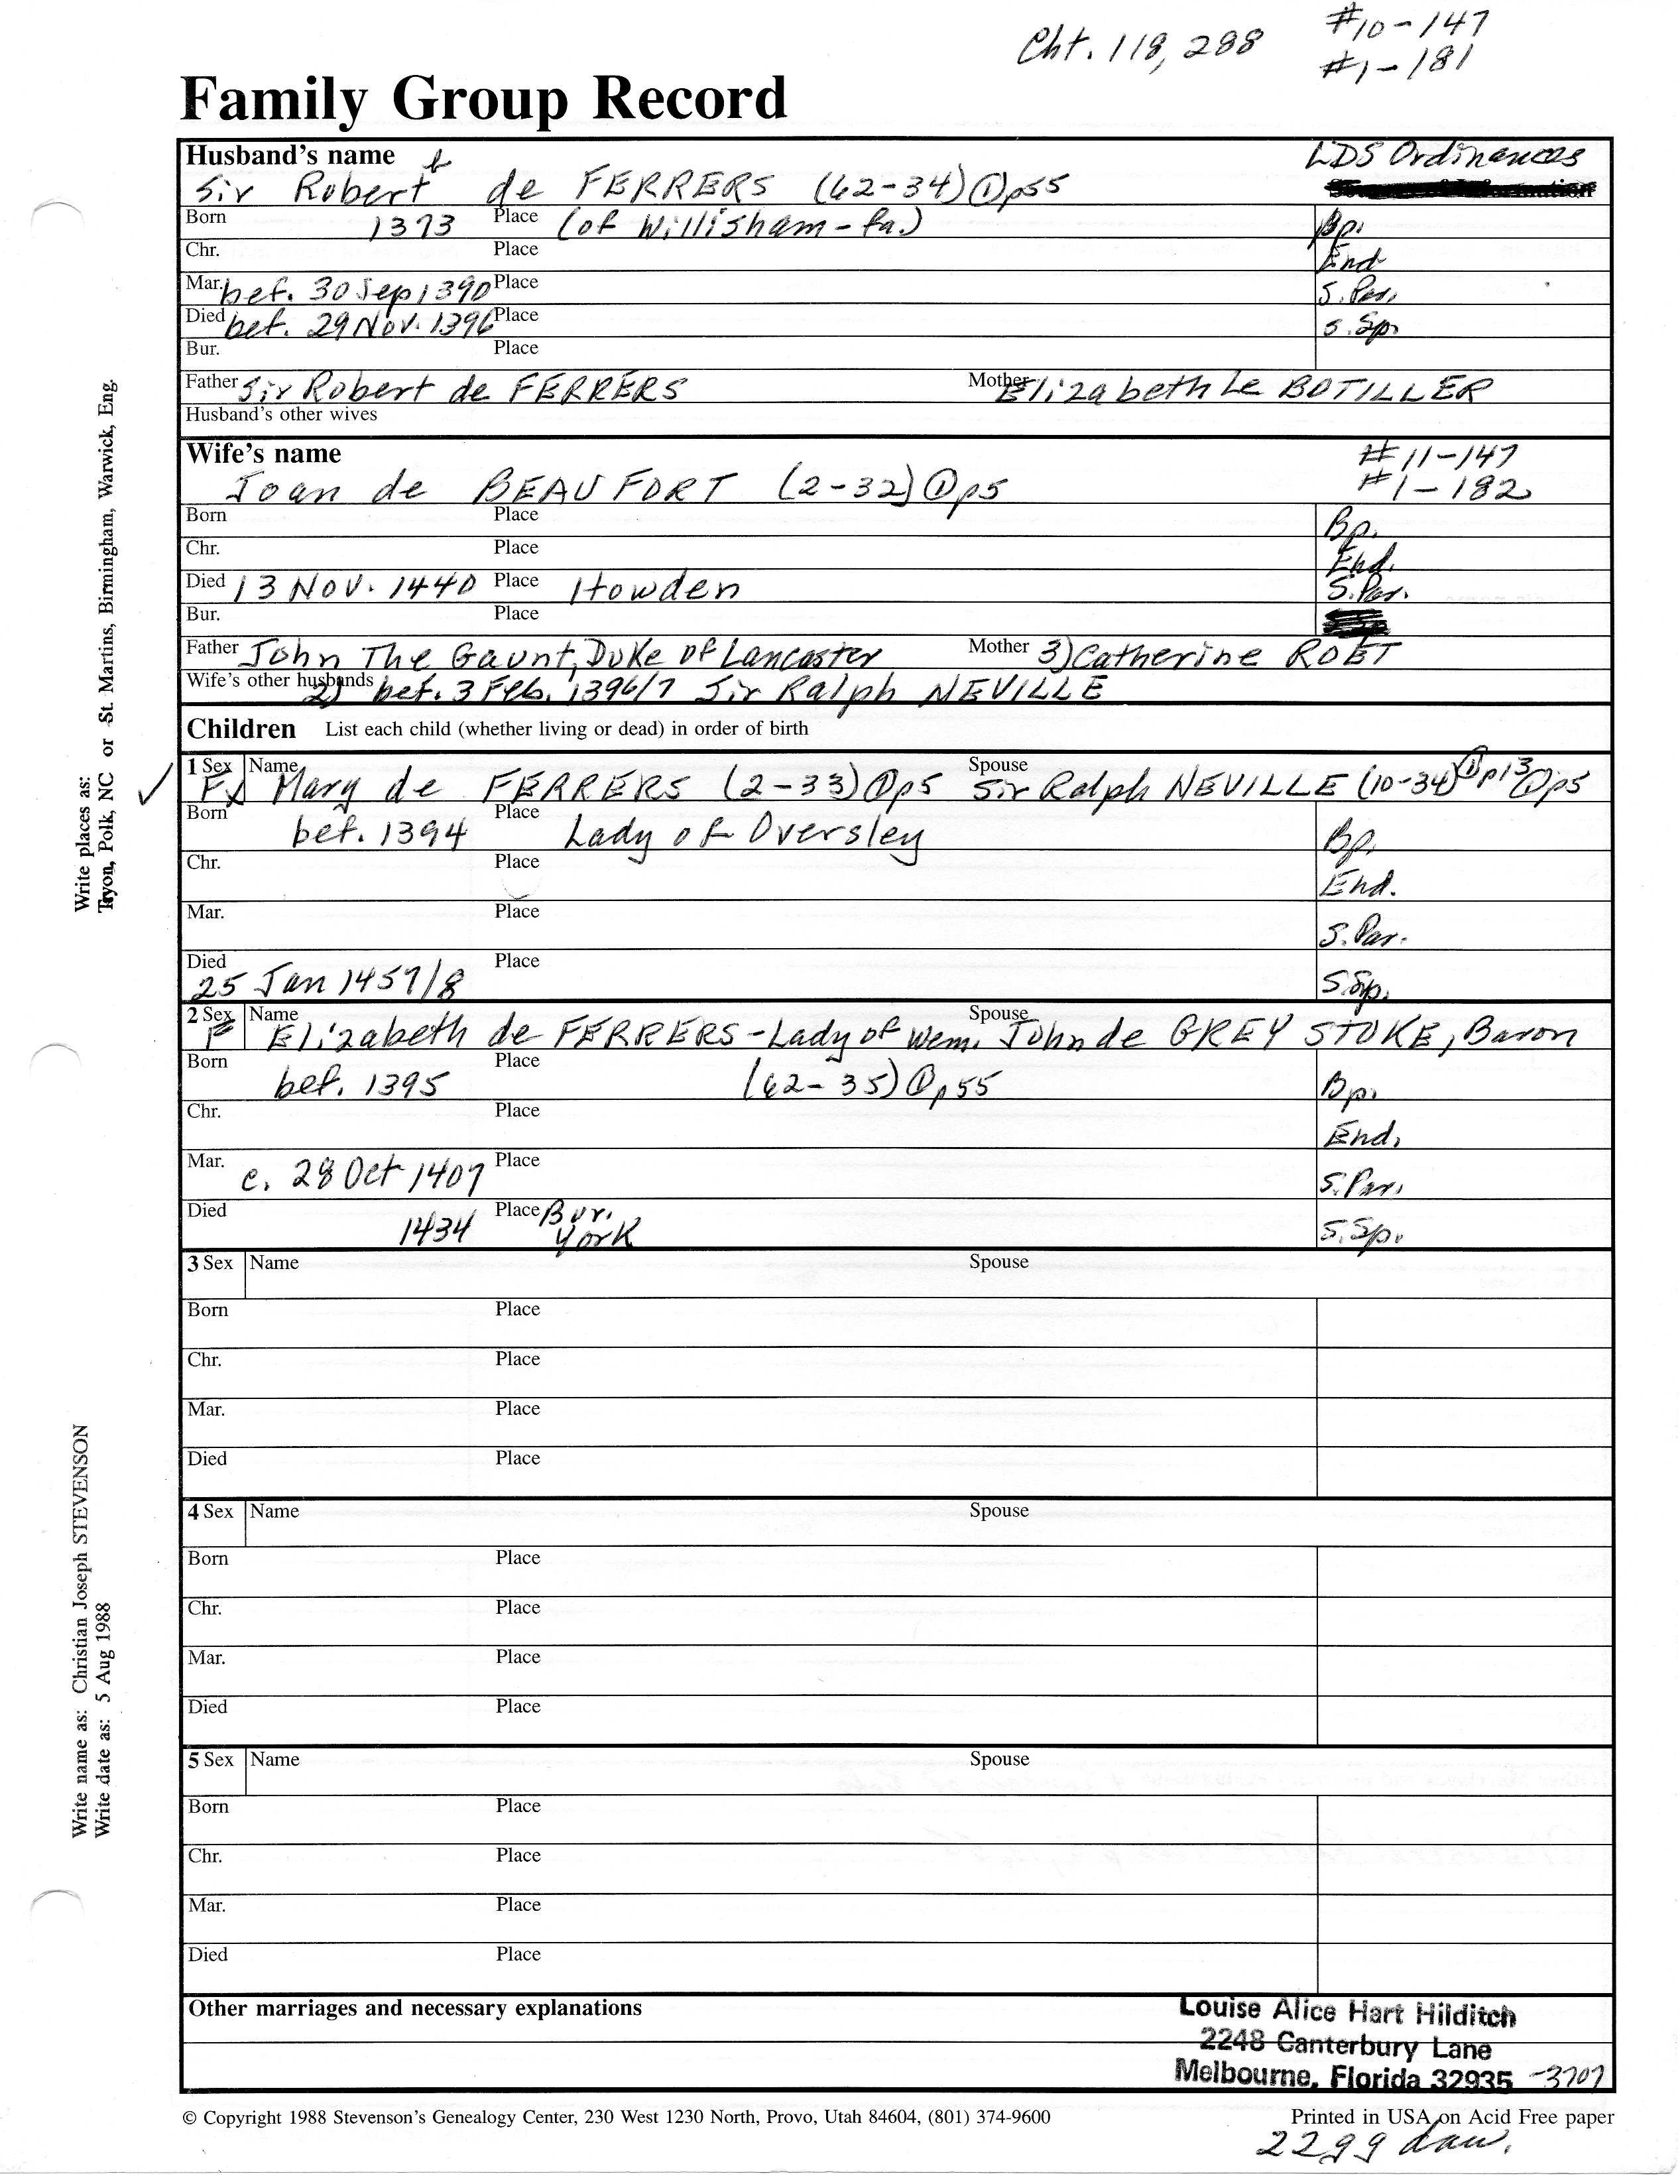 Cht. 118, 288 #10-147
#1-181
Family Group Record
Husband's name LDS Ordinances
Sir Robert de FERRERS (62-34) ① p55
Born 1373 Place (of Willisham-fa.) Bp.
Chr. Place End
Mar. bef. 30 Sep 1390 Place S. Par.
Died bef. 29 Nov. 1396 Place S. Sp.
Bur. Place
Father Sir Robert de FERRERS Mother Elizabeth Le BOTILLER
Husband's other wives
Wife's name #11-147
Joan de BEAUFORT (2-32) ① p5 #1-182
Born Place Bp.
Chr. Place End.
Died 13 Nov. 1440 Place Howden S. Par.
Bur. Place
Father John The Gaunt, Duke of Lancaster Mother 3) Catherine ROET
Wife's other husbands 2) bef. 3 Feb. 1396/7 Sir Ralph NEVILLE
Children List each child (whether living or dead) in order of birth
1 Sex Fx Name Mary de FERRERS (2-33) ① p5 Spouse Sir Ralph NEVILLE (10-34) ① p13 ① p5
Born bef. 1394 Place Lady of Oversley Bp.
Chr. Place End.
Mar. Place S. Par.
Died 25 Jan 1457/8 Place S. Sp.
2 Sex F Name Elizabeth de FERRERS - Lady of Wem. Spouse John de GREY STOKE, Baron
Born bef. 1395 Place (62-35) ① p55 Bp.
Chr. Place End.
Mar. c. 28 Oct 1407 Place S. Par.
Died 1434 Place Bur. York S. Sp.
3 Sex Name Spouse
Born Place
Chr. Place
Mar. Place
Died Place
4 Sex Name Spouse
Born Place
Chr. Place
Mar. Place
Died Place
5 Sex Name Spouse
Born Place
Chr. Place
Mar. Place
Died Place
Other marriages and necessary explanations
Louise Alice Hart Hilditch
2248 Canterbury Lane
Melbourne, Florida 32935 -3707
© Copyright 1988 Stevenson's Genealogy Center, 230 West 1230 North, Provo, Utah 84604, (801) 374-9600 Printed in USA on Acid Free paper
22gg dau.
Write places as:
Tryon, Polk, NC or St. Martins, Birmingham, Warwick, Eng.
Write name as: Christian Joseph STEVENSON
Write date as: 5 Aug 1988